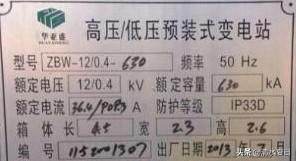 华亚盛
HUAYASHENG
高压/低压预装式变电站
型号 ZBW-12/0.4-630 频率 50 Hz
额定电压 12/0.4 kV 额定容量 630 kA
额定电流 36.4/908.3 A 防护等级 IP33D
箱体长 4.5 宽 2.3 高 2.6
编号 1152001307 出厂日期 2013